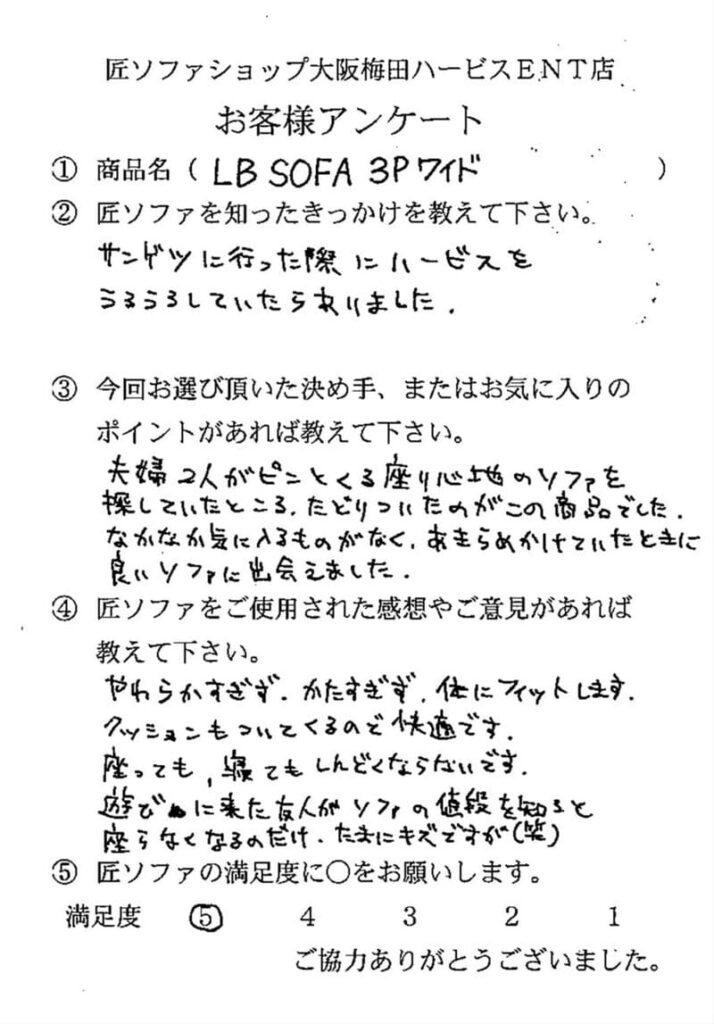 匠ソファショップ大阪梅田ハービスＥＮＴ店
お客様アンケート
① 商品名（ LB SOFA 3P ワイド ）
② 匠ソファを知ったきっかけを教えて下さい。
サンゲツに行った際にハービスを
うろうろしていたらありました.
③ 今回お選び頂いた決め手、またはお気に入りの
ポイントがあれば教えて下さい。
夫婦2人がピンとくる座り心地のソファを
探していたところ、たどりついたのがこの商品でした.
なかなか気に入るものがなく、あきらめかけていたときに
良いソファに出会えました.
④ 匠ソファをご使用された感想やご意見があれば
教えて下さい。
やわらかすぎず、かたすぎず、体にフィットします.
クッションもついてくるので快適です.
座っても、寝てもしんどくならないです.
遊びに来た友人がソファの値段を知ると
座らなくなるのだけ、たまにキズですが(笑)
⑤ 匠ソファの満足度に○をお願いします。
満足度 ⑤ 4 3 2 1
ご協力ありがとうございました。